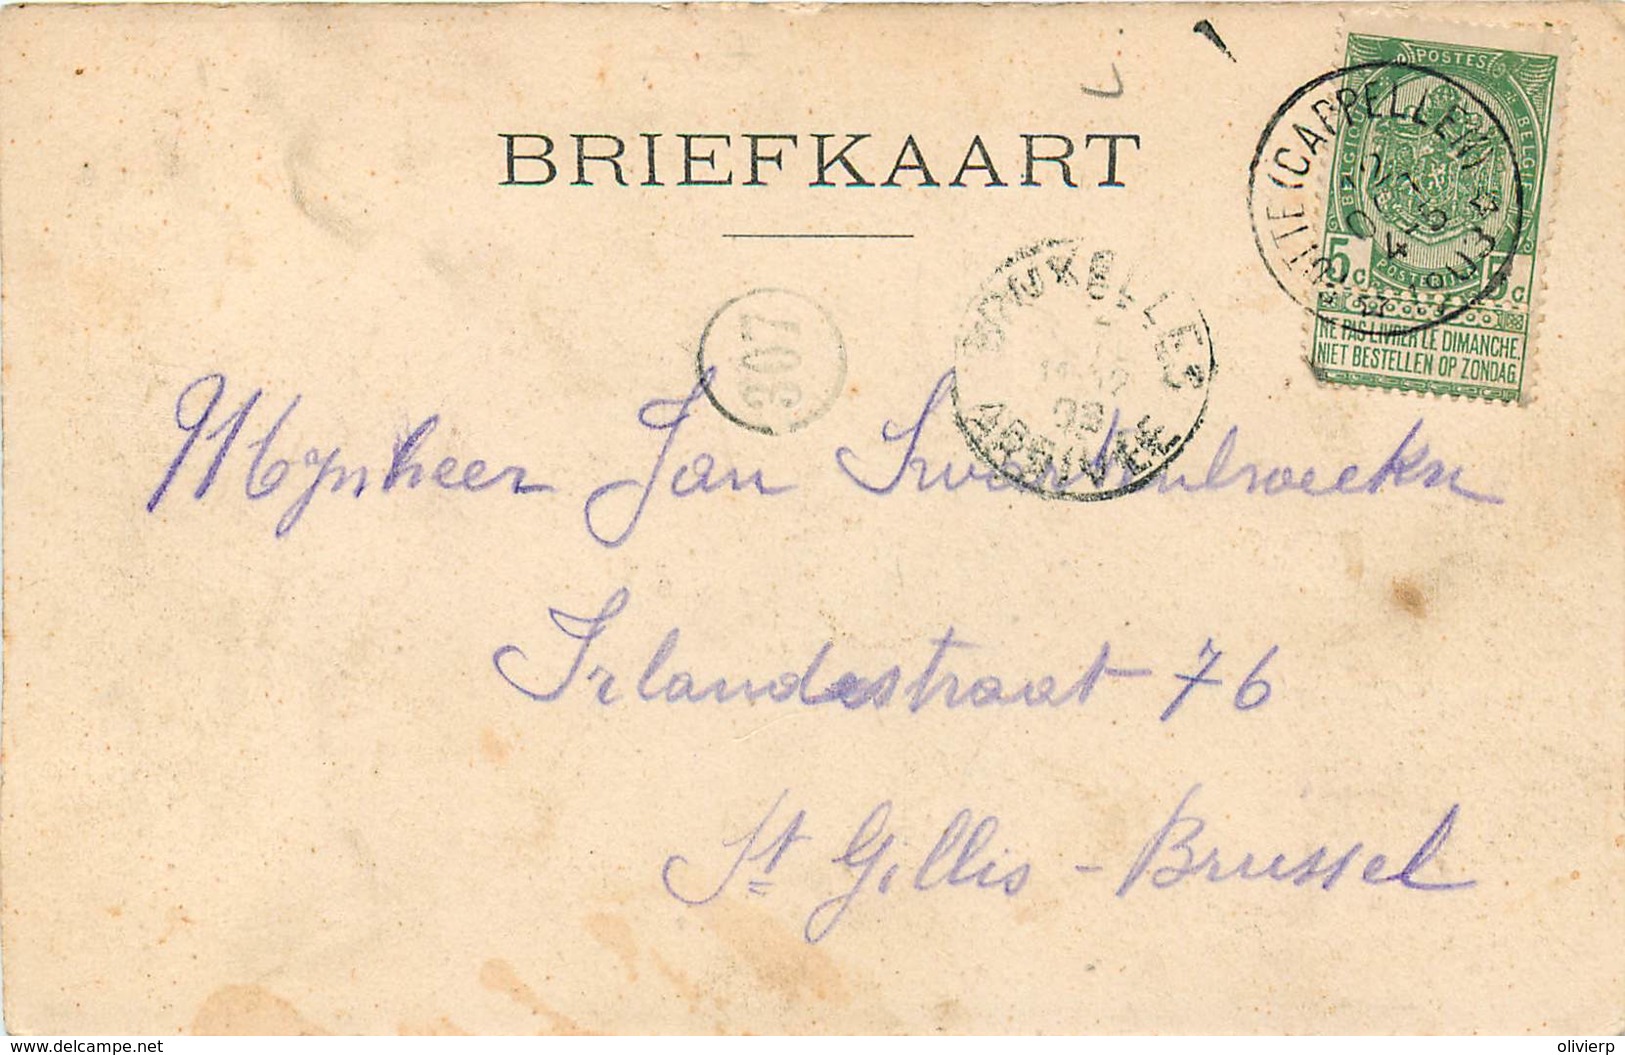 BRIEFKAART
POSTES
BELGIQUE
BELGIE
5c. 5c.
NE PAS LIVRER LE DIMANCHE.
NIET BESTELLEN OP ZONDAG
(CAPPELLEN)
BRUXELLES
ARRIVÉE
307
Mynheer Jan
Irlandestraat 76
St Gillis - Brussel
www.delcampe.net
olivierp